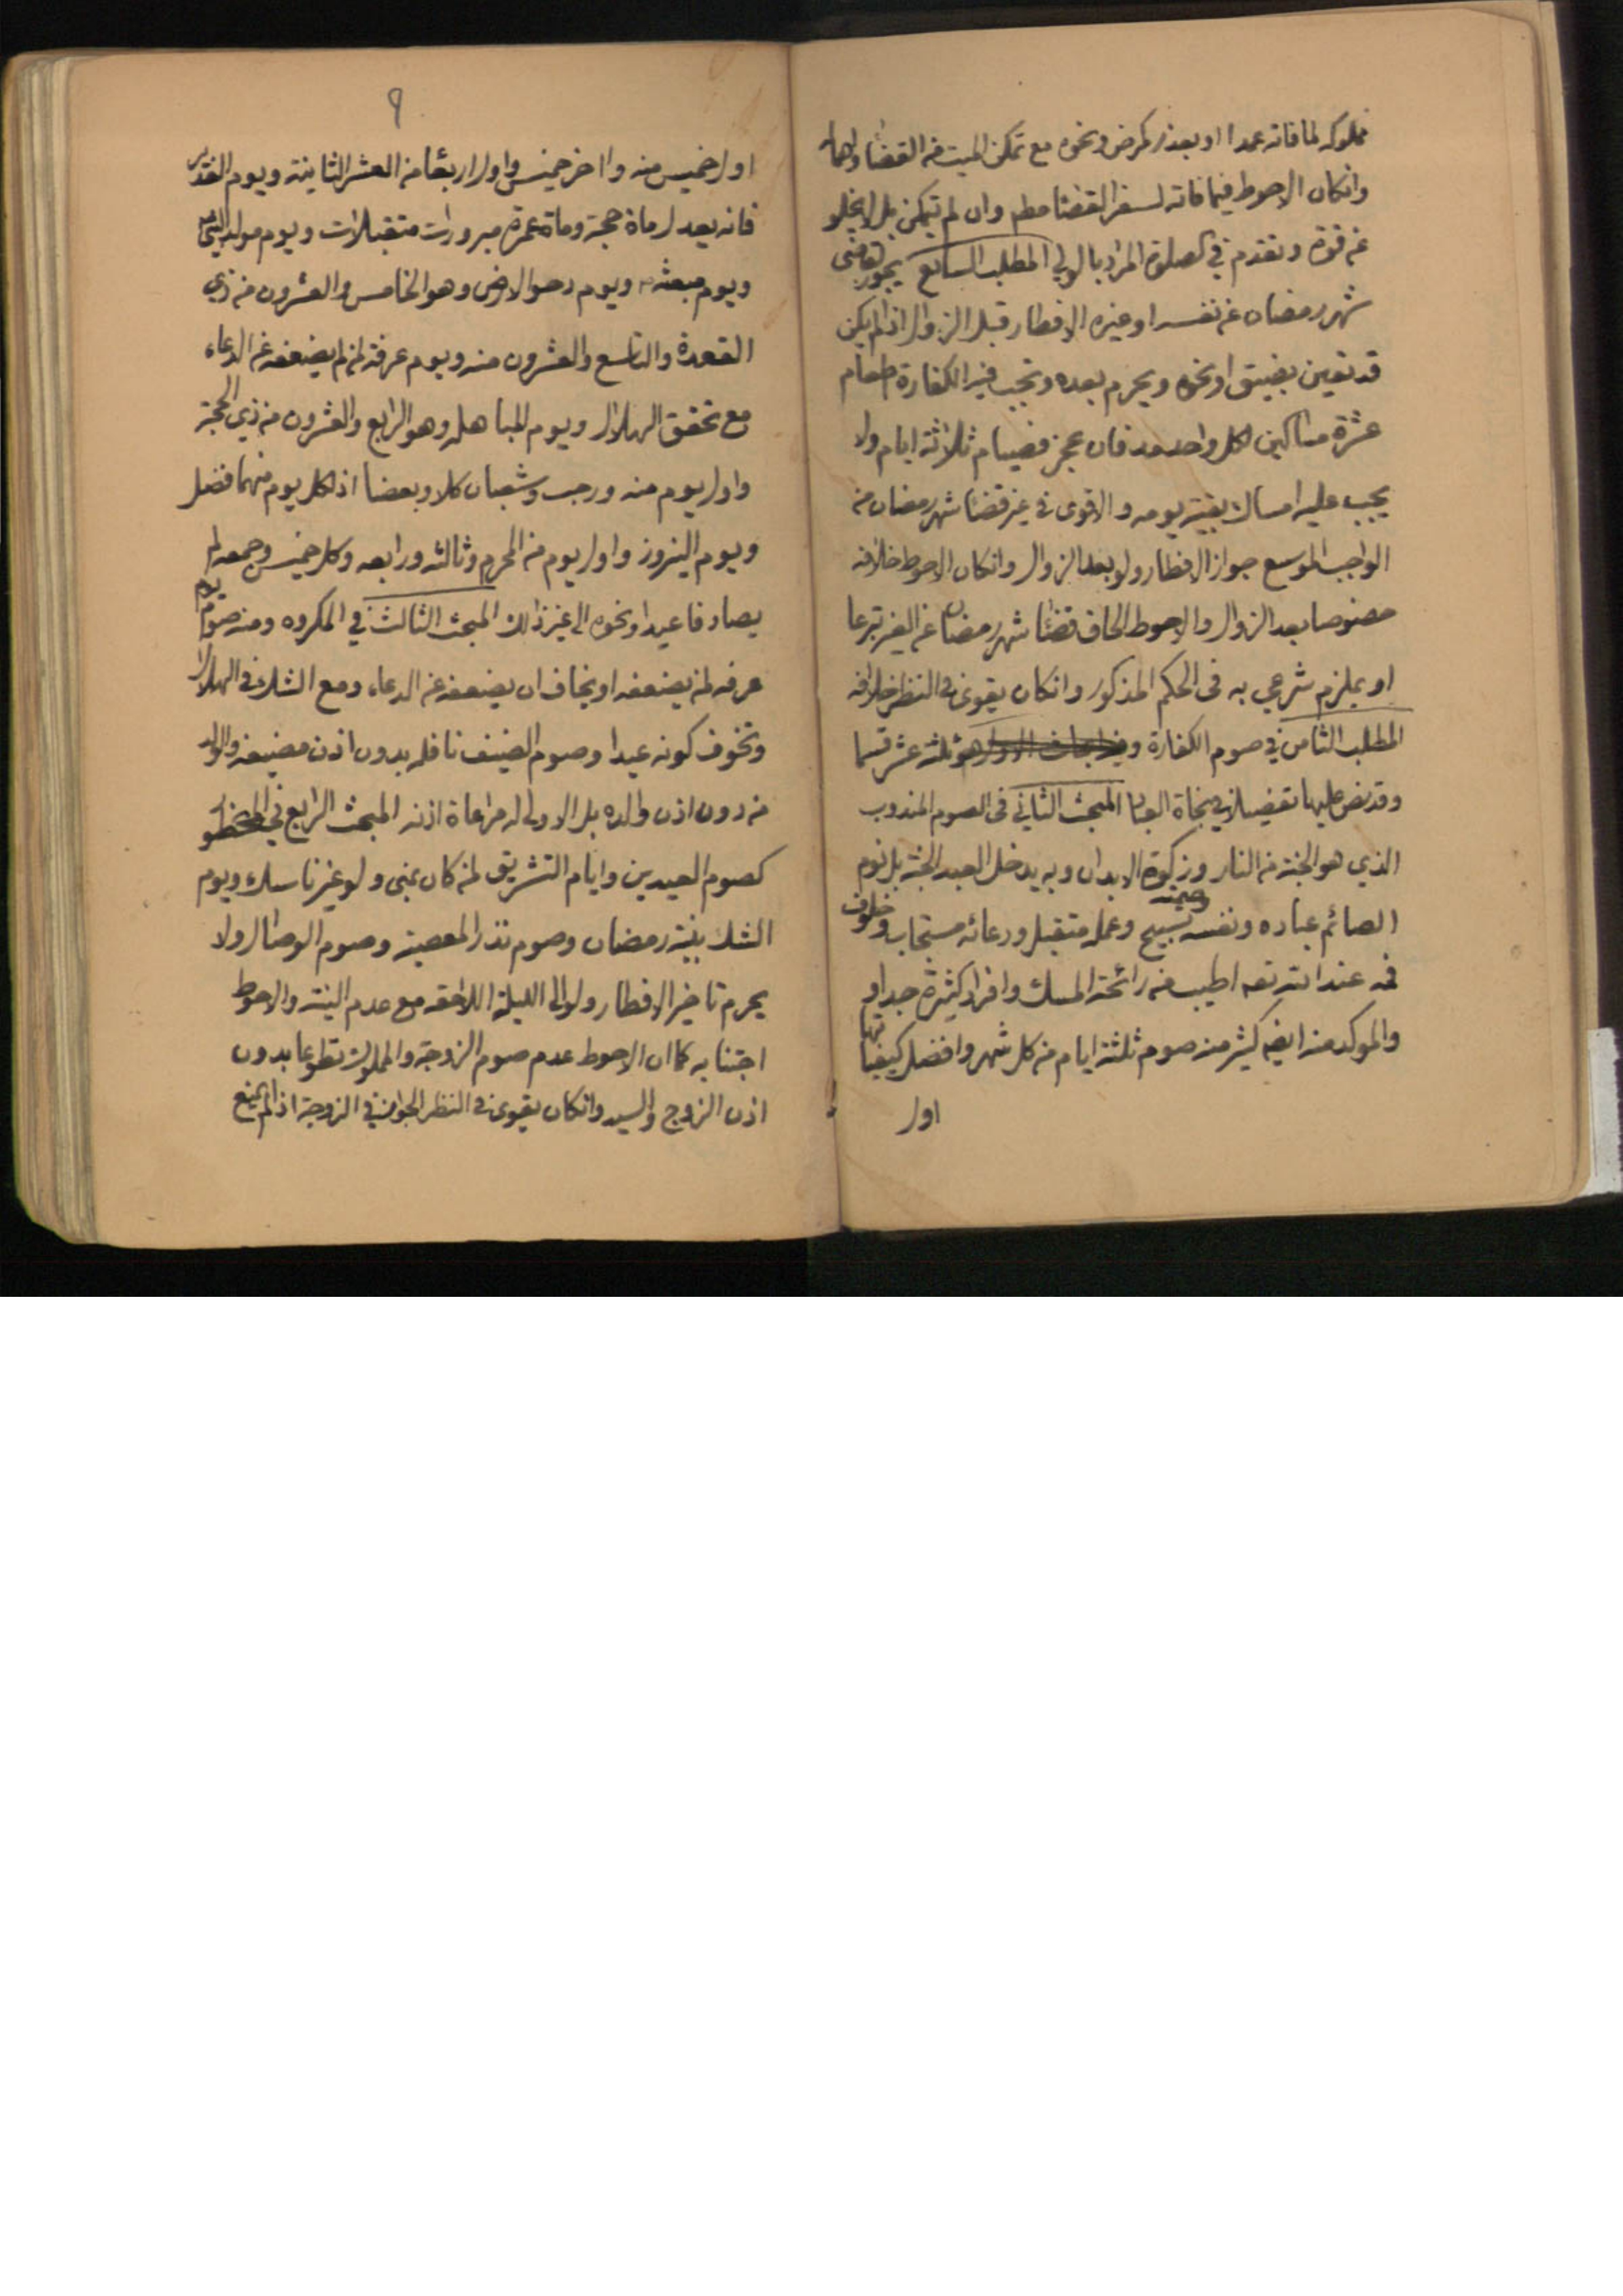 مملوكه لما فاته عمدا او بعذر كمرض ونحوه مع تمكن الميت من القضا واهماله
وانكان الاحوط فيما فاته لسفر القضا مطم وان لم يتمكن بل لا يخلو
عن قوة وتقدم في الصلوة المراد بالولي المطلب السابع يجوز لقاضي
شهر رمضان عن نفسه او غيره الافطار قبل الزوال اذا لم يكن
قد تعين بضيق او نحوه ويحرم بعده وتجب فيه الكفارة اطعام
عشرة مساكين لكل واحد مد فان عجز فصيام ثلاثة ايام ولا
يجب عليه امساك بقية يومه والاقوى في غير قضا شهر رمضان من
الواجب الموسع جواز الافطار ولو بعد الزوال وانكان الاحوط خلافه
خصوصا بعد الزوال والاحوط الحاق قضا شهر رمضان عن الغير تبرعا
او بملزم شرعي به في الحكم المذكور وانكان يقوى في النظر خلافه
المطلب الثامن في صوم الكفارة وهو ثلثة عشر قسما
وقد نص عليها تفصيلا في نجاة العباد المبحث الثاني في الصوم المندوب
الذي هو الجنة من النار وزكوة الابدان وبه يدخل العبد الجنة بل نوم
الصائم عباده ونفسه وصمته تسبيح وعمله متقبل ودعائه مستجاب وخلوف
فمه عند الله تعه اطيب من رائحة المسك وافراده كثيرة جدا و
والموكد منه ايضه كثير منه صوم ثلثة ايام من كل شهر وافضل كيفياتها
اول
٩
اول خميس منه واخر خميس واول اربعا من العشر الثانية ويوم الغدير
فانه يعدل ماة حجة وماة عمرة مبرورات متقبلات ويوم مولد النبي
ويوم مبعثه ويوم دحو الارض وهو الخامس والعشرون من ذي
القعدة والتاسع والعشرون منه ويوم عرفة لمن لم يضعفه عن الدعاء
مع تحقق الهلال ويوم المباهله وهو الرابع والعشرون من ذي الحجة
واول يوم منه ورجب وشعبان كلا وبعضا اذ لكل يوم منهما فضل
ويوم النيروز واول يوم من المحرم وثالثه ورابعه وكل خميس وجمعه لم
يصادفا عيدا ونحوه الى غير ذلك المبحث الثالث في المكروه ومنه صوم يوم
عرفه لمن يضعفه او يخاف ان يضعفه عن الدعاء ومع الشك في الهلال
وتخوف كونه عيدا وصوم الضيف نافله بدون اذن مضيفه والولد
من دون اذن والده بل الاولى له مراعاة اذنه المبحث الرابع في المحظور
كصوم العيدين وايام التشريق لمن كان بمنى ولو غير ناسك ويوم
الشك بنية رمضان وصوم نذر المعصية وصوم الوصال ولا
يحرم تاخير الافطار ولو الى الليلة اللاحقه مع عدم النية والاحوط
اجتنابه كما ان الاحوط عدم صوم الزوجة والمملوك تطوعا بدون
اذن الزوج والسيد وانكان يقوى في النظر الجواز في الزوجة اذا لم يمنع